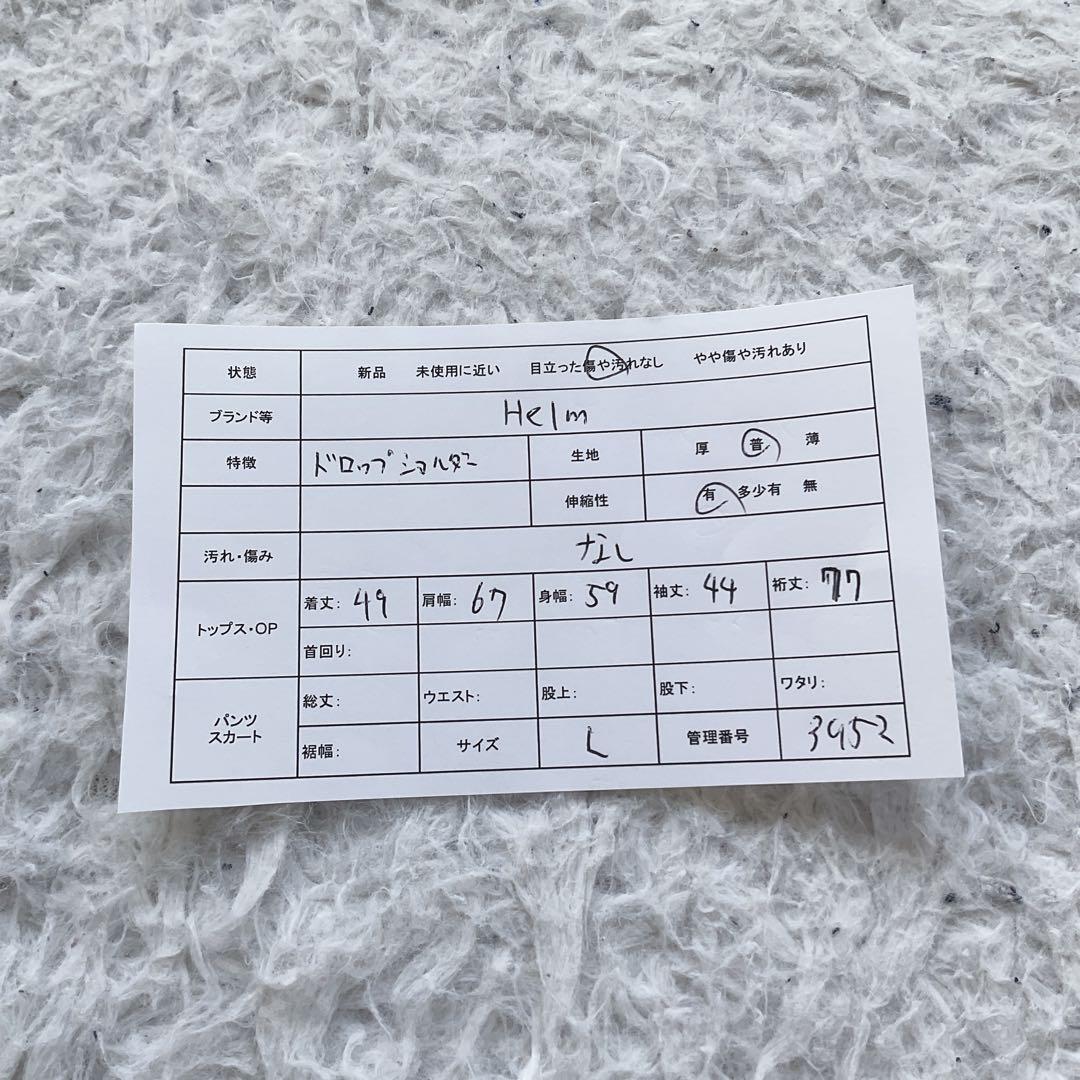 状態 新品 未使用に近い 目立った傷や汚れなし やや傷や汚れあり
ブランド等 Helm
特徴 ドロップショルダー 生地 厚 普 薄
伸縮性 有 多少有 無
汚れ・傷み なし
トップス・OP 着丈: 49 肩幅: 67 身幅: 59 袖丈: 44 裄丈: 77
首回り:
パンツ スカート 総丈: ウエスト: 股上: 股下: ワタリ:
裾幅: サイズ L 管理番号 3952